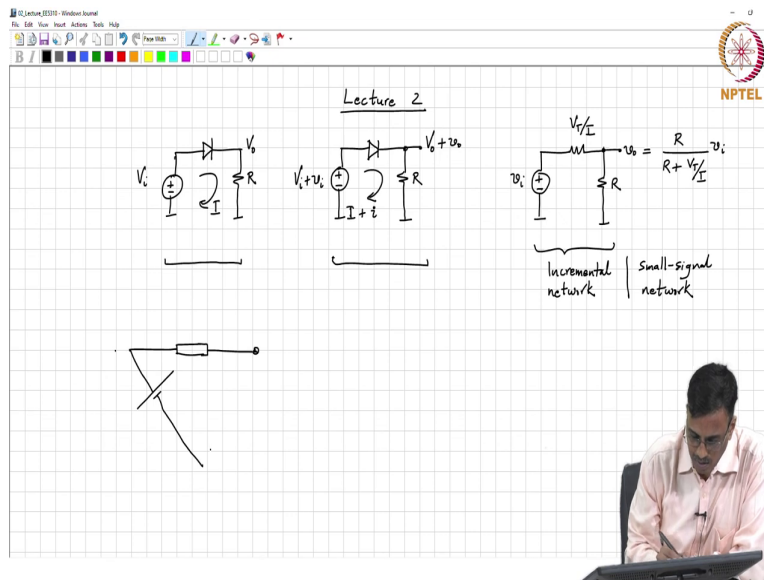 02_Lecture_EE5310 - Windows Journal
File Edit View Insert Actions Tools Help
Page Width
B I
NPTEL
Lecture 2
V_i
V_o
R
I
V_i+v_i
V_o+v_o
R
I+i
V_T/I
v_i
R
v_o = R / (R + V_T/I) v_i
Incremental network | Small-signal network